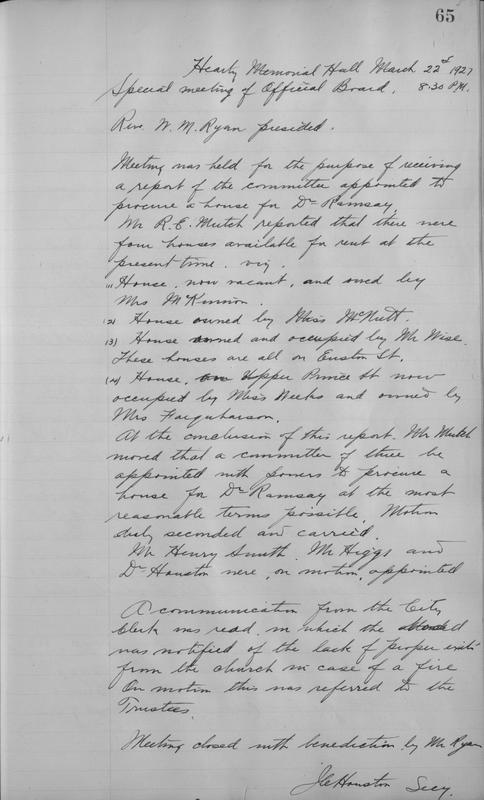 65
Heartz Memorial Hall March 22nd 1927
Special meeting of Official Board. 8.30 P.M.
Rev. W. M. Ryan presided.
Meeting was held for the purpose of receiving
a report of the committee appointed to
procure a house for Dr Ramsay
Mr R. E. Mutch reported that there were
four houses available for rent at the
present time. viz.
(1) House, now vacant, and owned by
Mrs McKinnon.
(2) House owned by Miss McNutt.
(3) House owned and occupied by Mr Wise.
These houses are all on Euston St.
(4) House, on Upper Prince St now
occupied by Miss Weeks and owned by
Mrs Farquharson.
At the conclusion of this report. Mr Mutch
moved that a committee of three be
appointed with powers to procure a
house for Dr Ramsay at the most
reasonable terms possible. Motion
duly seconded and carried.
Mr Henry Smith. Mr Higgs and
Dr Houston were, on motion, appointed
A communication from the City
Clerk was read, in which the
was notified of the lack of proper exits
from the church in case of a fire
On motion this was referred to the
Trustees.
Meeting closed with benediction by Mr Ryan
Houston Secy.